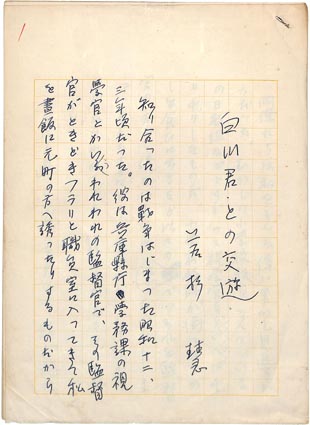 白川君との交遊
若杉 慧
知り合ったのは戦争はじまった昭和十二、
三年頃だった。彼は兵庫縣庁学務課の視
学官とかいいわれわれの監督官で、その監督
官がときどきフラリと職員室に入ってきて私
を晝飯に元町の方へ誘ったりするものだから